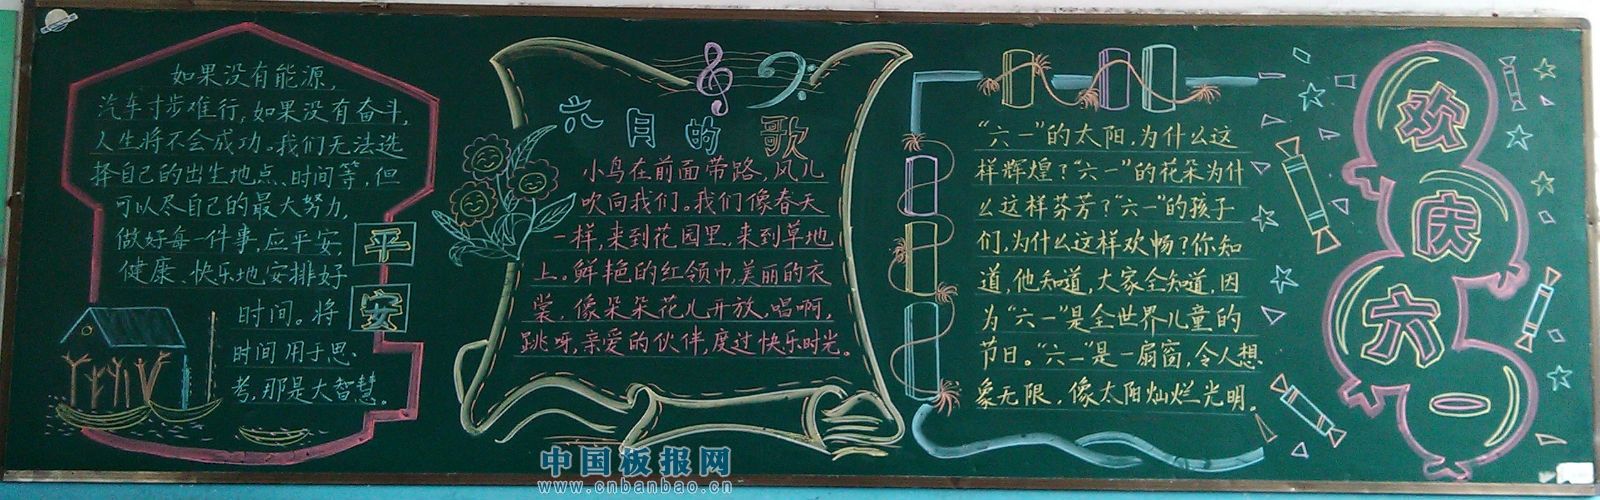 如果没有能源,
汽车寸步难行,如果没有奋斗,
人生将不会成功。我们无法选
择自己的出生地点、时间等,但
可以尽自己的最大努力,
做好每一件事,应平安,
健康、快乐地安排好
时间。将
时间用于思
考,那是大智慧。
平
安
六月的歌
小鸟在前面带路,风儿
吹向我们。我们像春天
一样,来到花园里,来到草地
上。鲜艳的红领巾,美丽的衣
裳,像朵朵花儿开放,唱啊,
跳呀,亲爱的伙伴,度过快乐时光。
“六一”的太阳,为什么这
样辉煌?“六一”的花朵为什
么这样芬芳?“六一”的孩子
们,为什么这样欢畅?你知
道,他知道,大家全知道,因
为“六一”是全世界儿童的
节日。“六一”是一扇窗,令人想
象无限,像太阳灿烂光明。
欢
庆
六
一
中国板报网
www.cnbanbao.cn